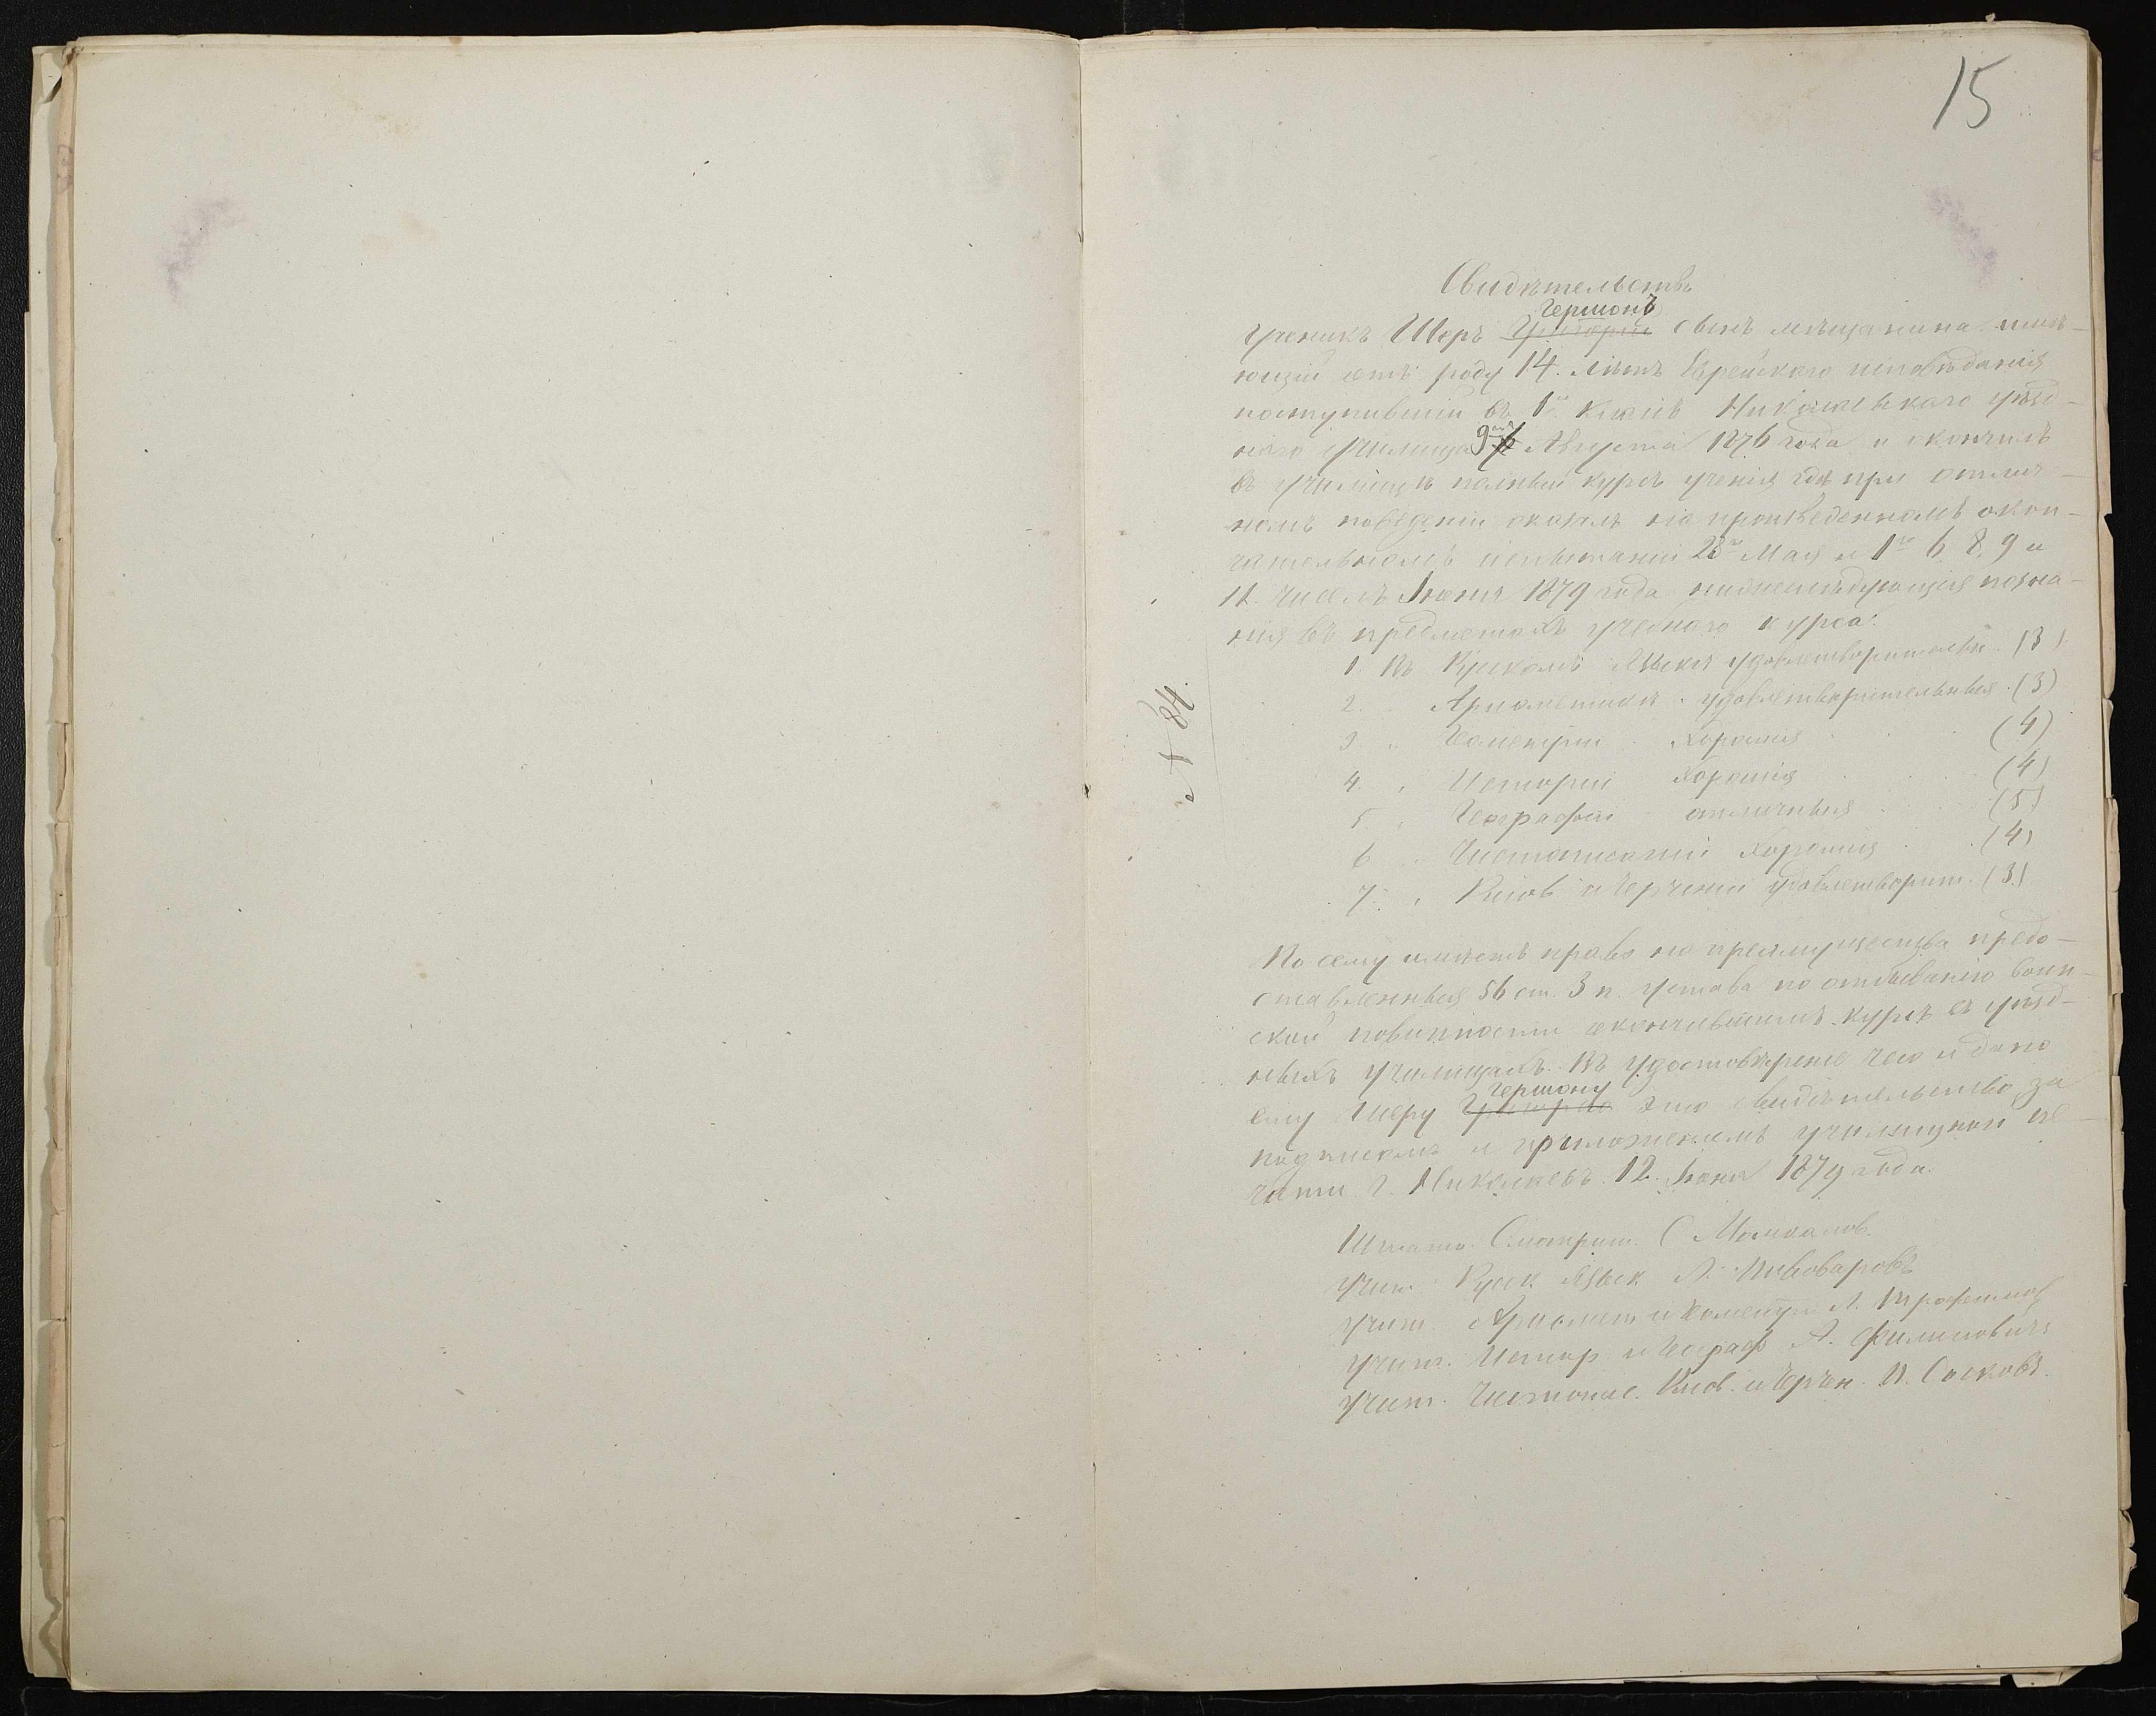 15
Свидѣтельство
Гершонъ
Ученикъ Шеръ Григорій сынъ мѣщанина имѣ-
ющій отъ роду 14. лѣтъ Еврейскаго исповѣданія
поступившій въ 1й классъ Николаевскаго уѣзд-
наго училища 9го Августа 1876 года и окончилъ
въ училищѣ полный курсъ ученія гдѣ при отлич-
номъ поведеніи оказалъ на произведенномъ окон-
чательномъ испытаніи 28го Мая и 1го 6. 8, 9 и
11. чиселъ Іюня 1879 года нижеслѣдующія позна-
нія въ предметахъ учебнаго курса:
1. Въ Русскомъ языкѣ удовлетворительн. (3)
2. „ Ариѳметикѣ удовлетворительныя. (3)
3 „ Геометріи хорошія (4)
4. „ Исторіи хорошія (4)
5 „ Географіи отличныя (5)
6 „ Чистописаніи хорошія (4)
7. „ Рисов и черченіи удовлетворит. (3)
№ 84.
По сему имѣетъ право на преимущества предо-
ставленныя 56 ст. 3 п. устава по отбыванію воин-
ской повинности окончившимъ курсъ въ уѣзд-
ныхъ училищахъ. Въ удостовѣреніе чего и дано
Гершону
ему Шеру Григорію это свидѣтельство за
подписомъ и приложеніемъ училищной пе-
чати г. Николаевъ. 12. Іюня 1879 года.
Штатн. Смотрит. С
Учит. Русск язык Л. Пивоваровъ
Учит. Ариѳмет и Геометр Л. Трофимов
Учит. Истор и Географ А. Филиповичъ
Учит. Чистопис. Рисов. и Черчен. П. Сосковъ.